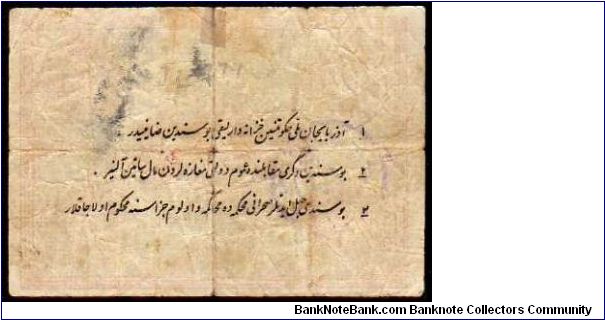 ۱ آذربایجان ملی حکومتنین خزانه دارلیقی بو سندین ضامنیدیر.
۲ بو سندین دگری مقابلنده عموم دولتی مغازه لردن مال ساتین آلنیر.
۳ بو سندی جعل ایدنلر صحرائی محکمه ده محاکمه و اولوم جزاسنه محکوم اولاجاقلار
BankNoteBank.com Banknote Collectors Community